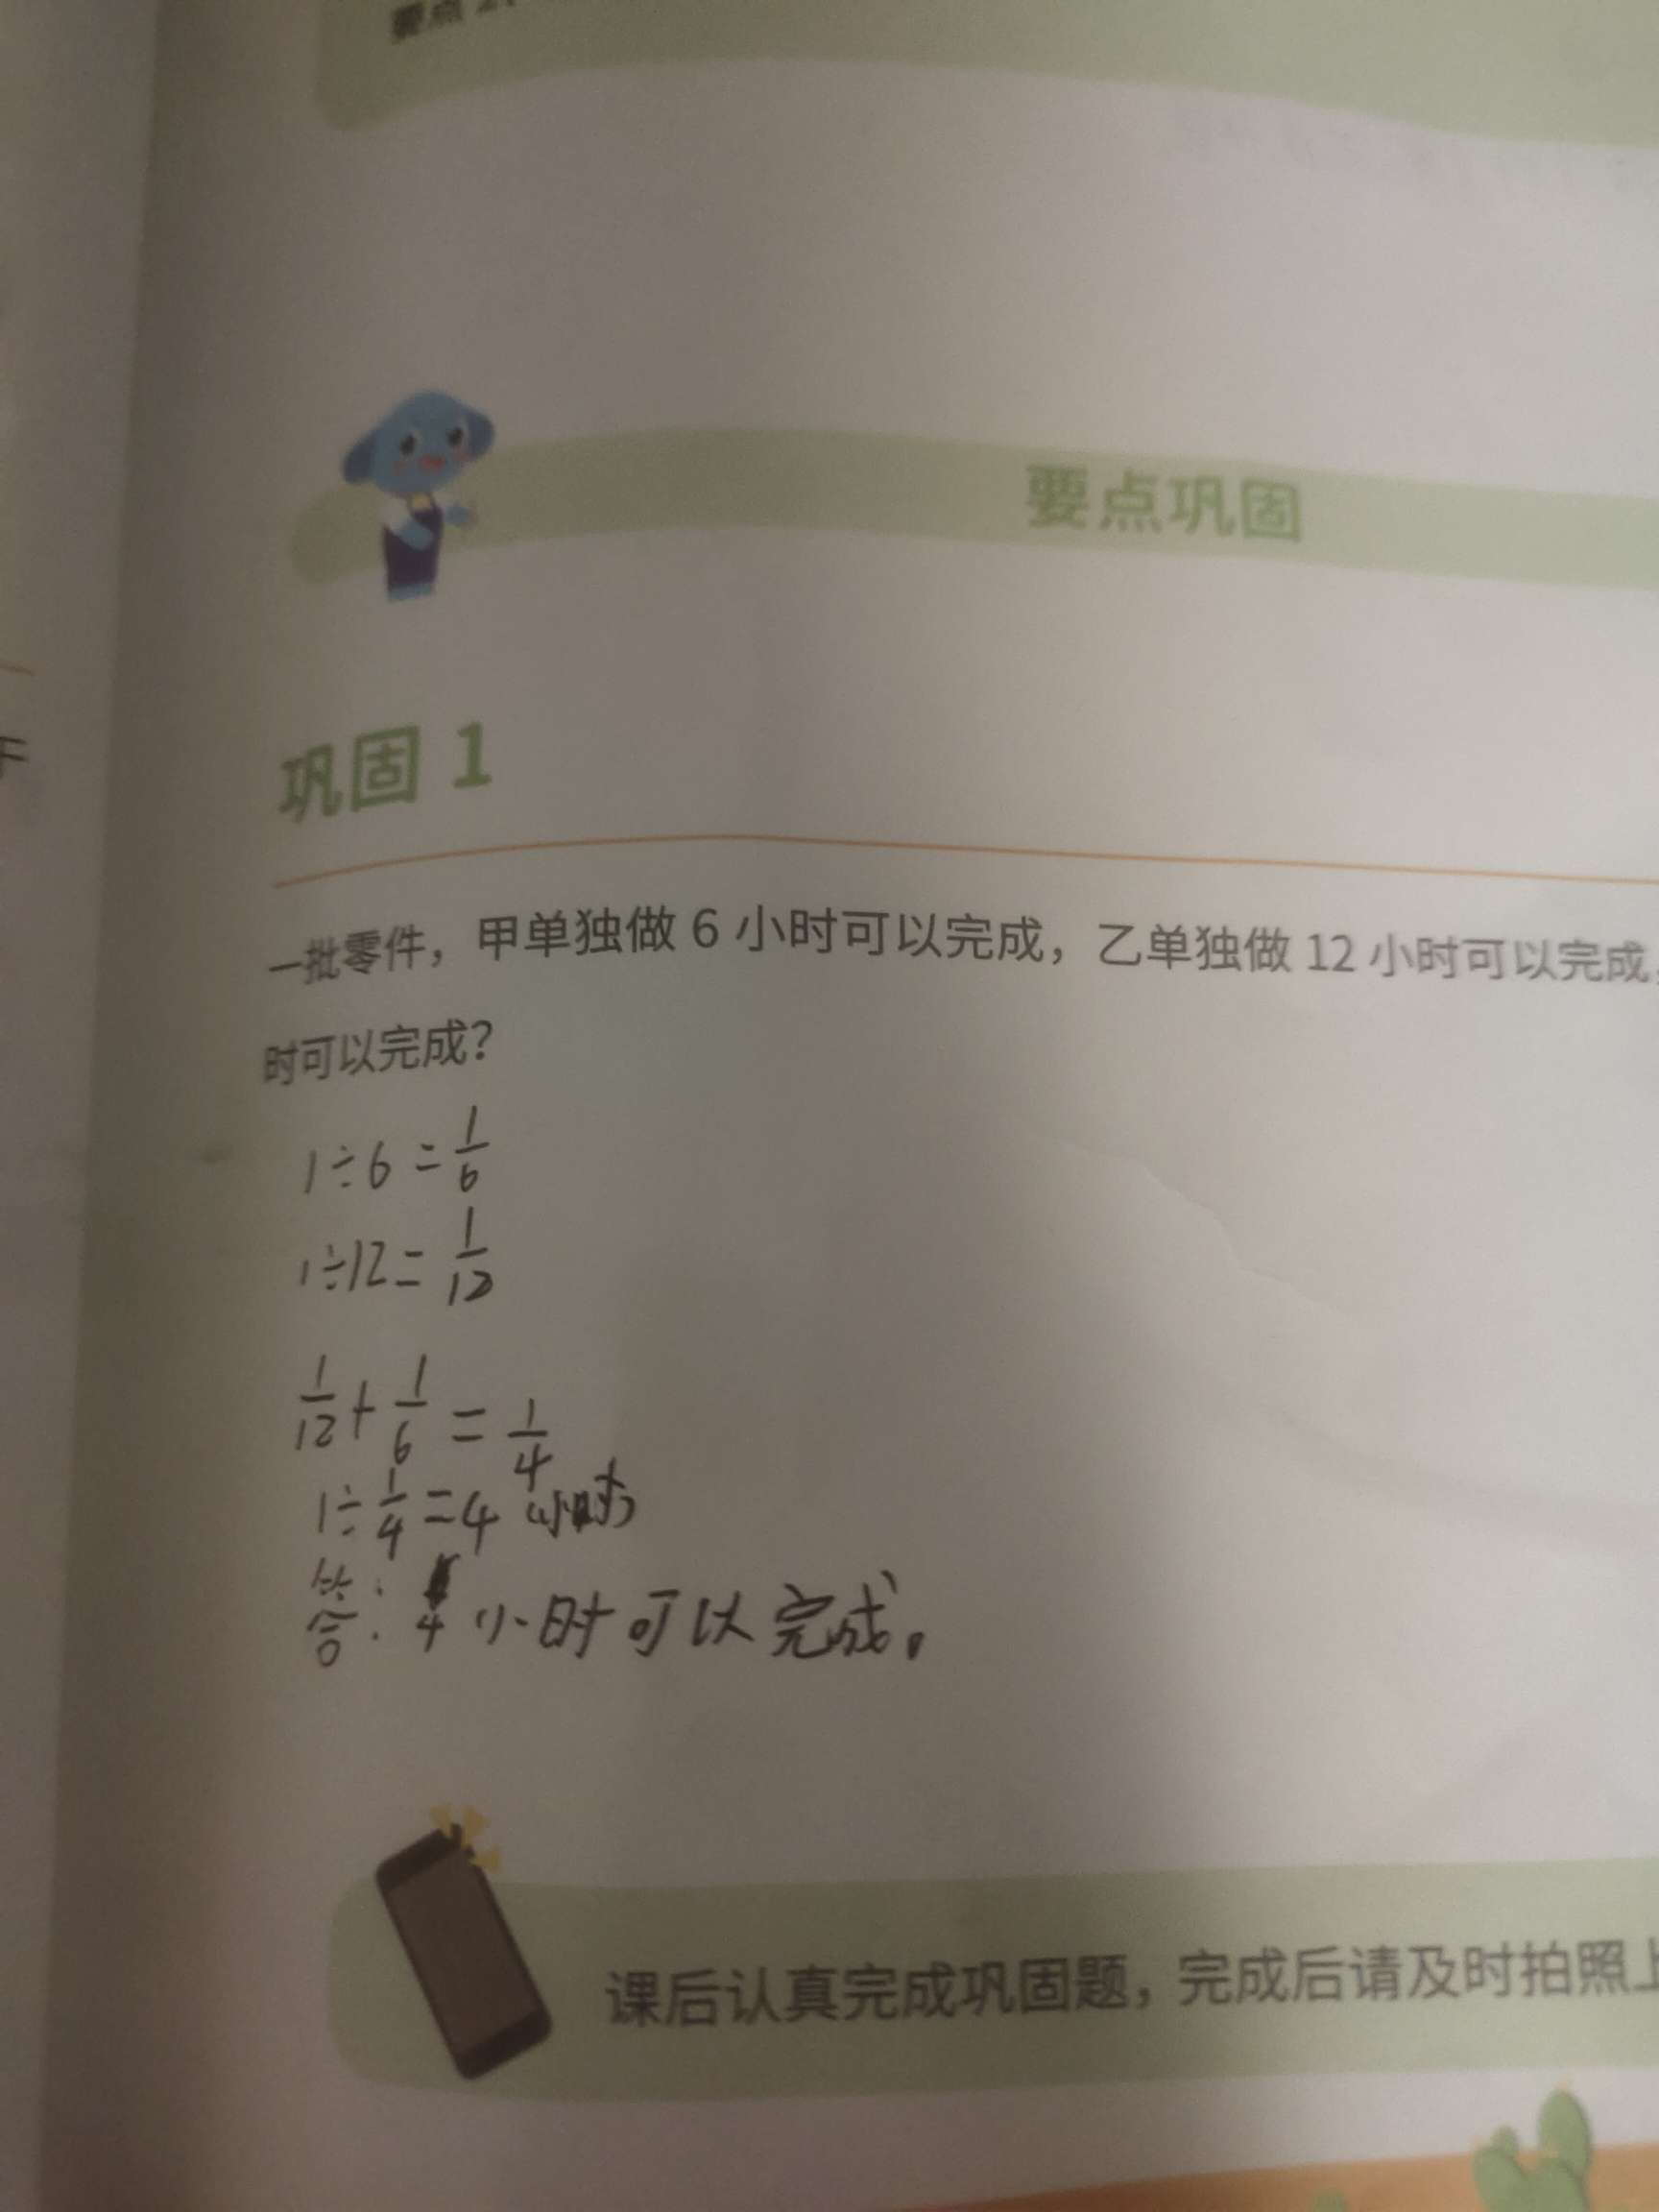 要点
要点巩固
巩固 1
一批零件，甲单独做 6 小时可以完成，乙单独做 12 小时可以完成，
时可以完成？
1÷6=1/6
1÷12=1/12
1/12+1/6=1/4
1÷1/4=4（小时）
答：4小时可以完成。
课后认真完成巩固题，完成后请及时拍照上